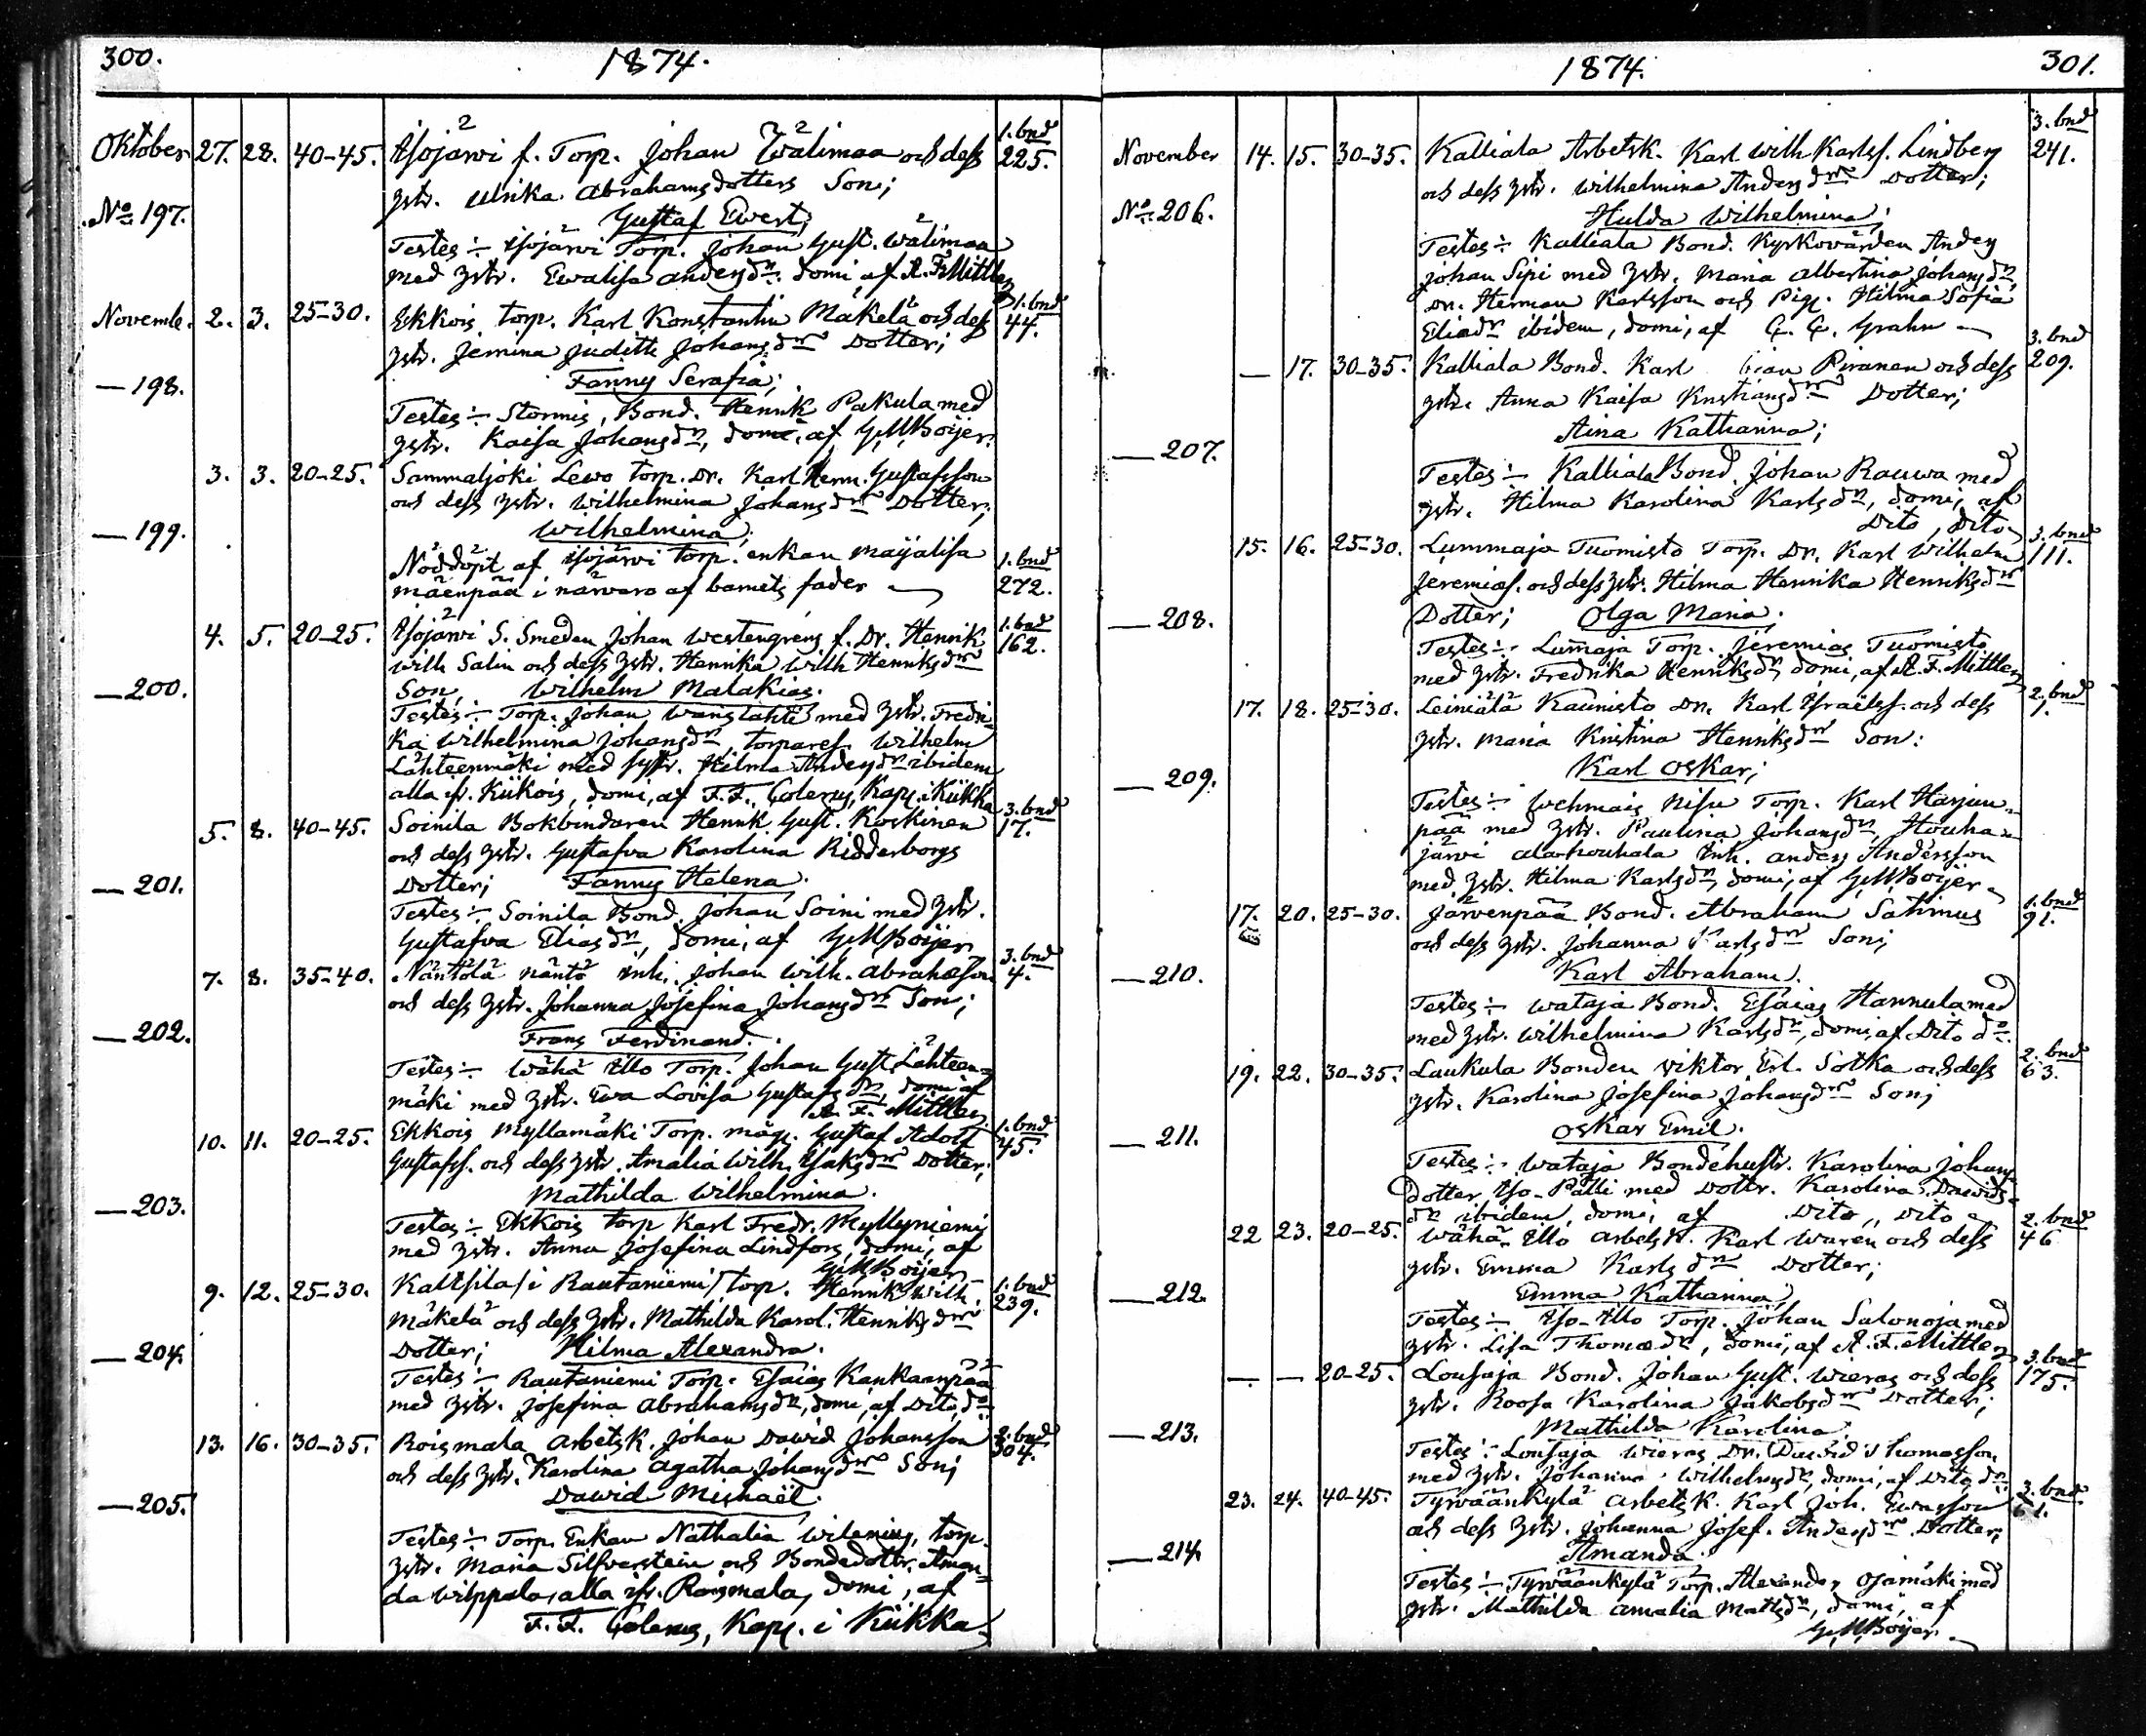 300.
1874.
Oktober 27. 28. 40-45. Isojärwi f. Torp. Johan Wälimaa och dess 1. bnd 225.
hstr. Ulrika Abrahamsdotters Son;
No 197. Gustaf Evert;
Testes:- Isojärwi Torp. Johan Gust. Wälimaa
med hstr. Ewalisa Andersdr. domi, af A. F. Mittler
Novemb. 2. 3. 25-30. Ekkois torp. Karl Konstantin Mäkelä och dess 1. bnd 44.
hstr. Jemina Judith Johansdrs Dotter;
— 198. Fanny Serafia;
Testes:- Stormis, Bond. Henrik Pakula med
hstr. Kaisa Johansdr, domi, af G. M. Boijer.
3. 3. 20-25. Sammaljoki Lewo torp. Dr. Karl Herm. Gustafsson
och dess hstr. Wilhelmina Johansdrs Dotter;
— 199. Wilhelmina;
Nöddöpt af Isojärwi torp. enkan Maijalisa 1. bnd
mäenpää i närvaro af barnets fader 272.
4. 5. 20-25. Isojärwi S. Smeden Johan Westengrens f. Dr. Henrik 1. bnd 162.
Wilh Salin och dess hstr. Henrika Wilh Henriksdrs
— 200. Son, Wilhelm Malakias.
Testes:- Torp. Johan Wanslahti med hstr. Fredri-
ka Wilhelmina Johansdr, torpares. Wilhelm
Lähteenmäki med systr. Hilma Andersdr ibidem
alla fr. Kiikois, domi, af F. F. Colerus, Kapl. i Kiikka
5. 8. 40-45. Soinila Bokbindaren Henrik Gust. Koskinen 3. bnd 17.
och dess hstr. Gustafva Karolina Ridderborgs
— 201. Dotter; Fanny Helena.
Testes:- Soinila Bond. Johan Soini med hstr.
Gustafva Eliasdr, domi, af G. M. Boijer
7. 8. 35-40. Näntölä näntö Inh. Johan Wilh. Abrahamsson 3. bnd 4.
och dess hstr. Johanna Josefina Johansdrs Son;
— 202. Frans Ferdinand.
Testes:- Wähä Illo Torp. Johan Gust. Lähteen-
mäki med hstr. Ewa Lovisa Gustafsdr, domi af
A. F. Mittler.
10. 11. 20-25. Ekkois Myllämäki Torp. måg. Gustaf Adolf 1. bnd 45.
Gustafss. och dess hstr. Amalia Wilh. Isaksdrs Dotter;
— 203. Mathilda Wilhelmina.
Testes:- Ekkois torp Karl Fredr. Myllyniemi
med hstr. Anna Josefina Lindfors, domi, af
G. M. Boijer
9. 12. 25-30. Kaltsila/i Rautaniemi/ torp. Henrik Wilh. 1. bnd 239.
Mäkelä och dess hstr. Mathilda Karol. Henriksdrs
— 204. Dotter; Hilma Alexandra.
Testes:- Rautaniemi Torp. Esaias Kankaanpää
med hstr. Josefina Abrahamsdr, domi, af Dito, do
13. 16. 30-35. Roismala Arbetsk. Johan Dawid Johansson 2. bnd 304.
och dess hstr. Karolina Agatha Johansdrs Son;
— 205. Dawid Mishaël.
Testes:- Torp. Enkan Nathalia Wilenius, torp.
hstr. Maria Silfverstein och Bondedottr. Aman-
da Wilppala, alla ifr. Roismala, domi, af
F. F. Colerus, Kapl. i Kiikka
1874.
301.
November 14. 15. 30-35. Kalliala Arbetsk. Karl Wilh Karlss. Lindberg 3. bnd 241.
och dess hstr. Wilhelmina Andersdrs Dotter;
No 206. Hulda Wilhelmina;
Testes:- Kalliala Bond. Kyrkovärden Anders
Johan Sipi med hstr. Maria Albertina Johansdr,
Dr. Herman Karlsson och Pig. Hilma Sofia
Eliadr ibidem, domi, af G. G. Grahn
— 17. 30-35. Kalliala Bond. Karl Piranen och dess 3. bnd 209.
hstr. Anna Kaisa Kristiansdrs Dotter;
Aina Katharina;
— 207.
Testes:- Kalliala Bond. Johan Rauwa med
hstr. Hilma Karolina Karlsdr, domi, af
Dito, Dito
15. 16. 25-30. Lummaja Tuomisto Torp. Dr. Karl Wilhelm 3. bnd 111.
Jeremiass. och dess hstr. Hilma Henrika Henriksdrs
— 208. Dotter; Olga Maria.
Testes:- Lum̄aja Torp. Jeremias Tuomisto
med hstr. Fredrika Henriksdr, domi, af A. F. Mittler
17. 18. 25-30. Leiniälä Kaunisto Dr. Karl Israelss. och dess 2. bnd 1.
hstr. Maria Kristina Henriksdrs Son:
— 209. Karl Oskar;
Testes:- Wehmais Nisu Torp. Karl Harjun-
pää med hstr. Paulina Johansdr, Houha-
järvi alahouhala Inh. Anders Andersson
med hstr. Hilma Karlsdr, domi, af G. M. Boijer
17. 20. 25-30. Järvenpää Bond. Abraham Satimus 1. bnd 91.
och dess hstr. Johanna Karlsdrs Son;
— 210. Karl Abraham.
Testes:- Wataja Bond. Esaias Hannula med
med hstr. Wilhelmina Karlsdr, domi, af Dito do.
19. 22. 30-35. Laukula Bonden Viktor Erl. Sotka och dess 2. bnd 63.
hstr. Karolina Josefina Johansdrs Son;
— 211. Oskar Emil.
Testes:- Wataja Bondehustr. Karolina Johans-
dotter, Iso-Pälli med Dottr. Karolina Dawids-
dr ibidem, domi, af Dito, Dito
22 23. 20-25. Wähä Illo Arbetsk. Karl Waren och dess 2. bnd 46
hstr. Emma Karlsdrs Dotter;
— 212. Emma Katharina,
Testes:- Iso-Illo Torp. Johan Salonoja med
hstr. Lisa Thomædr, domi, af A. F. Mittler
— — 20-25. Lousaja Bond. Johan Gust. Wieras och dess 3. bnd 175.
hstr. Roosa Karolina Jakobsdrs Dotter;
— 213. Mathilda Karolina.
Testes:- Lousaja Wieras Dr. Dawid Thomasson
med hstr. Johanna Wilhelmsdr, domi, af Dito, do
23. 24. 40-45. Tyrwäänkylä Arbetsk. Karl Joh. Ewasson 3. bnd 61.
och dess hstr. Johanna Josef. Andersdrs Dotter;
— 214. Amanda.
Testes:- Tyrwäänkylä Torp. Alexander Ojamäki med
hstr. Mathilda Amalia Mattsdr, domi, af
G. M. Boijer.